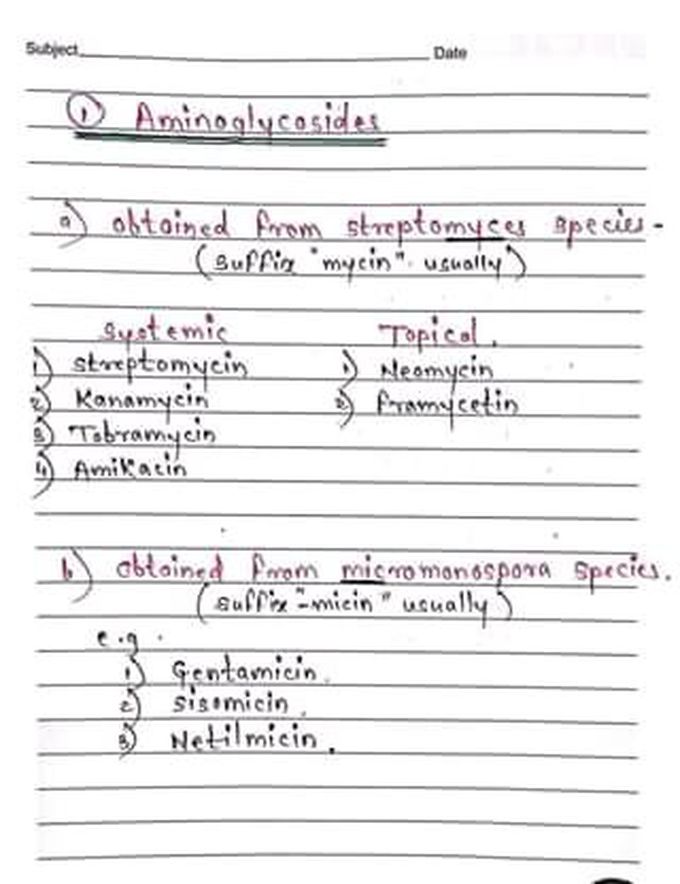 Subject Date
① Aminoglycosides
a) obtained from streptomyces species-
(suffix "mycin" usually)
systemic Topical.
1) streptomycin 1) Neomycin
2) Kanamycin 2) framycetin
3) Tobramycin
4) Amikacin
b) obtained from micromonospora species.
(suffix "-micin" usually)
e.g.
1) Gentamicin.
2) sisomicin.
3) Netilmicin.